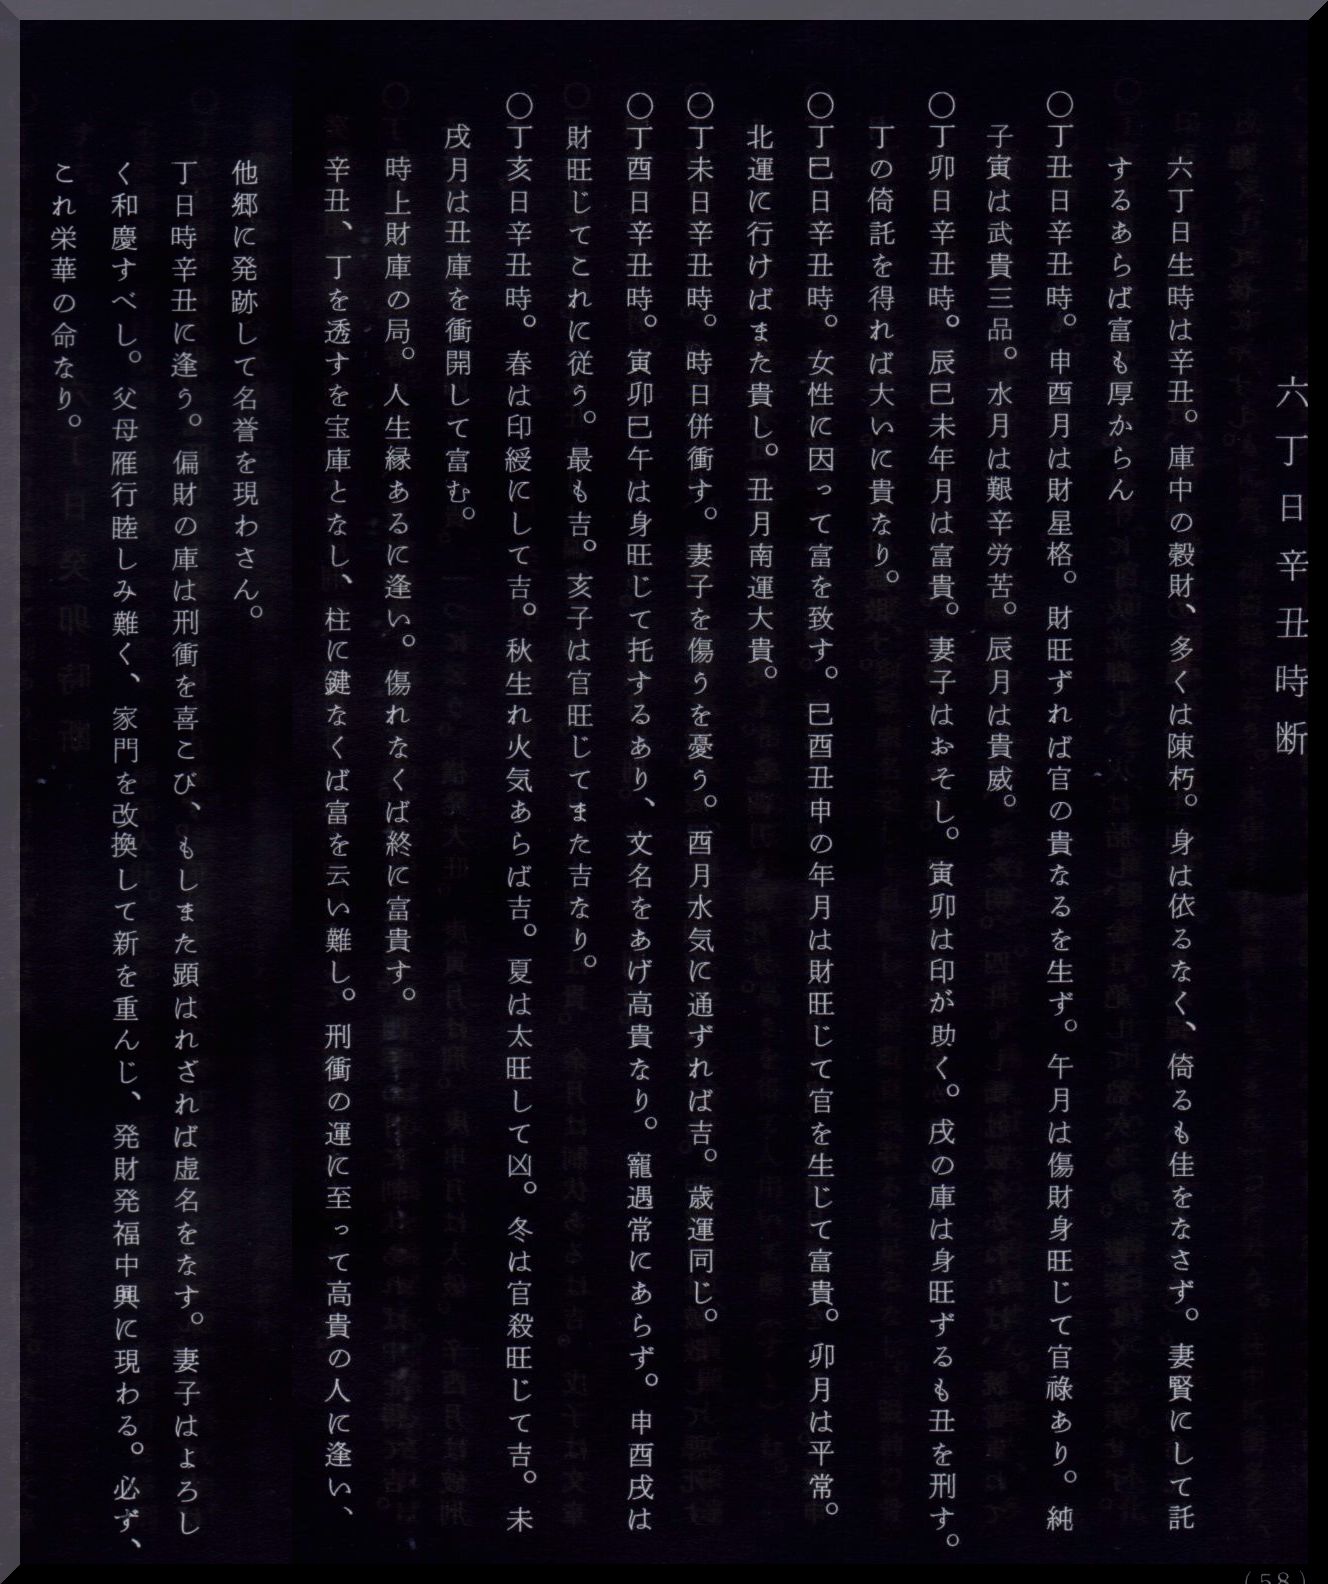 六丁日辛丑時断
六丁日生時は辛丑。庫中の穀財、多くは陳朽。身は依るなく、倚るも佳をなさず。妻賢にして託
するあらば富も厚からん
〇丁丑日辛丑時。申酉月は財星格。財旺ずれば官の貴なるを生ず。午月は傷財身旺じて官祿あり。純
子寅は武貴三品。水月は艱辛労苦。辰月は貴威。
〇丁卯日辛丑時。辰巳未年月は富貴。妻子はおそし。寅卯は印が助く。戌の庫は身旺ずるも丑を刑す。
丁の倚託を得れば大いに貴なり。
〇丁巳日辛丑時。女性に因って富を致す。巳酉丑申の年月は財旺じて官を生じて富貴。卯月は平常。
北運に行けばまた貴し。丑月南運大貴。
〇丁未日辛丑時。時日併衝す。妻子を傷うを憂う。酉月水気に通ずれば吉。歳運同じ。
〇丁酉日辛丑時。寅卯巳午は身旺じて托するあり、文名をあげ高貴なり。寵遇常にあらず。申酉戌は
財旺じてこれに従う。最も吉。亥子は官旺じてまた吉なり。
〇丁亥日辛丑時。春は印綬にして吉。秋生れ火気あらば吉。夏は太旺して凶。冬は官殺旺じて吉。未
戌月は丑庫を衝開して富む。
時上財庫の局。人生縁あるに逢い。傷れなくば終に富貴す。
辛丑、丁を透すを宝庫となし、柱に鍵なくば富を云い難し。刑衝の運に至って高貴の人に逢い、
他郷に発跡して名誉を現わさん。
丁日時辛丑に逢う。偏財の庫は刑衝を喜こび、もしまた顕はれざれば虚名をなす。妻子はよろし
く和慶すべし。父母雁行睦しみ難く、家門を改換して新を重んじ、発財発福中興に現わる。必ず、
これ栄華の命なり。
(58)